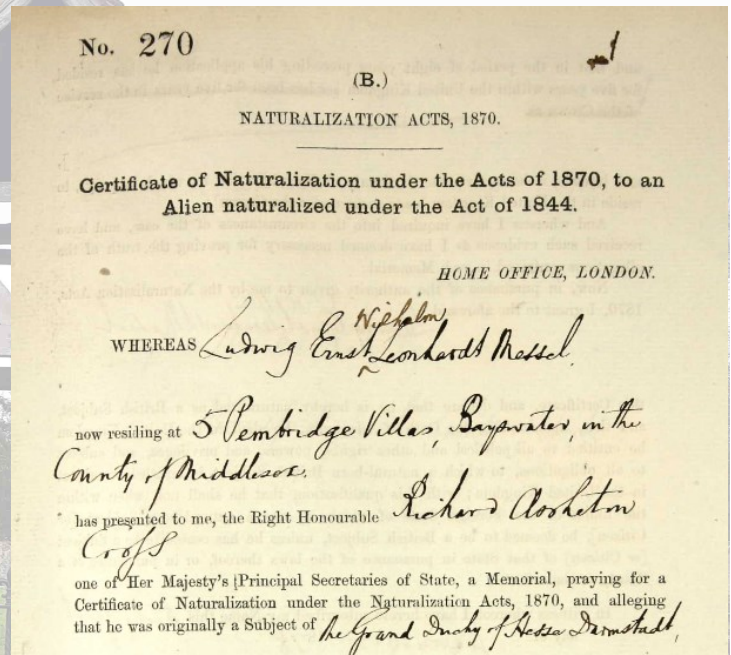 No. 270
(B.)
NATURALIZATION ACTS, 1870.
Certificate of Naturalization under the Acts of 1870, to an
Alien naturalized under the Act of 1844.
HOME OFFICE, LONDON.
Wilhelm
WHEREAS Ludwig Ernst ^ Leonhardt Messel
now residing at 5 Pembridge Villas, Bayswater, in the
County of Middlesex.
has presented to me, the Right Honourable Richard Assheton
Cross
one of Her Majesty's [Principal Secretaries of State, a Memorial, praying for a
Certificate of Naturalization under the Naturalization Acts, 1870, and alleging
that he was originally a Subject of the Grand Duchy of Hesse Darmstadt,